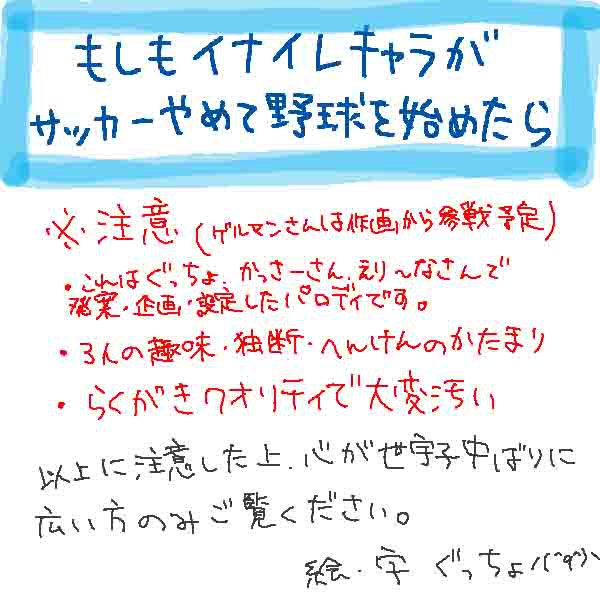 もしもイナイレキャラが
サッカーやめて野球を始めたら
※注意(ゲルマンさんは作画から参戦予定)
・これはぐっちょ、かっさーさん、えり〜なさんで
発案・企画・設定したパロディです。
・3人の趣味・独断・へんけんのかたまり
・らくがきクオリティで大変汚い
以上に注意した上、心が世宇子中ばりに
広い方のみご覧ください。
絵・字 ぐっちょ